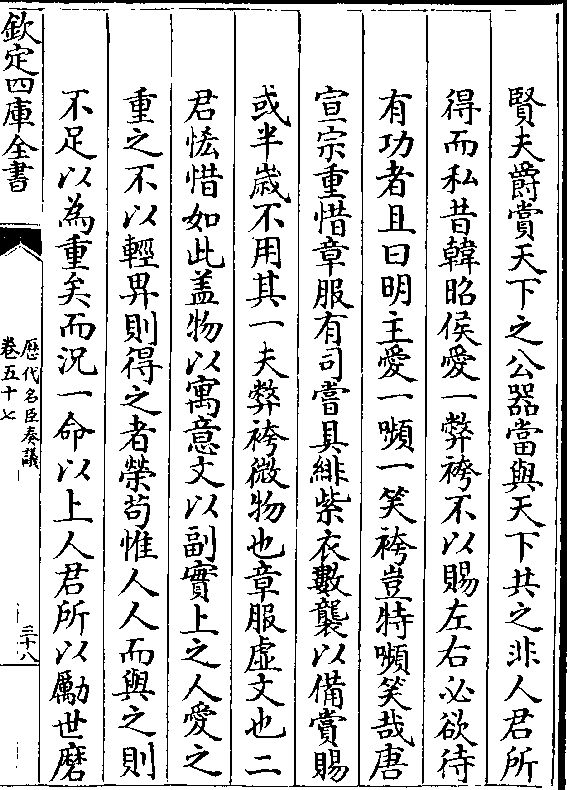 賢夫爵賞天下之公器當與天下共之非人君所
得而私昔韓昭侯愛一弊袴不以賜左右必欲待
有功者且曰明主愛一嚬一笑袴豈特嚬笑哉唐
宣宗重惜章服有司嘗具緋紫衣數襲以備賞賜
或半歳不用其一夫弊袴微物也章服虚文也二
君恡惜如此盖物以寓意文以副實上之人愛之
重之不以輕畀則得之者榮苟惟人人而與之則
不足以為重矣而況一命以上人君所以勵世磨
欽定四庫全書
歴代名臣奏議
卷五十七
三十八